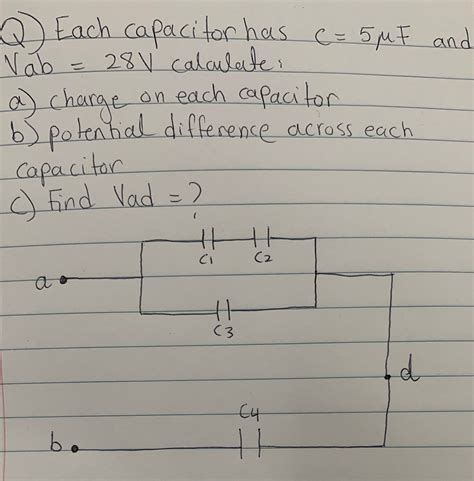 Q) Each capacitor has c = 5μF and
Vab = 28V calculate:
a) charge on each capacitor
b) potential difference across each
capacitor
c) Find Vad = ?
C1 C2
a
C3
d
C4
b